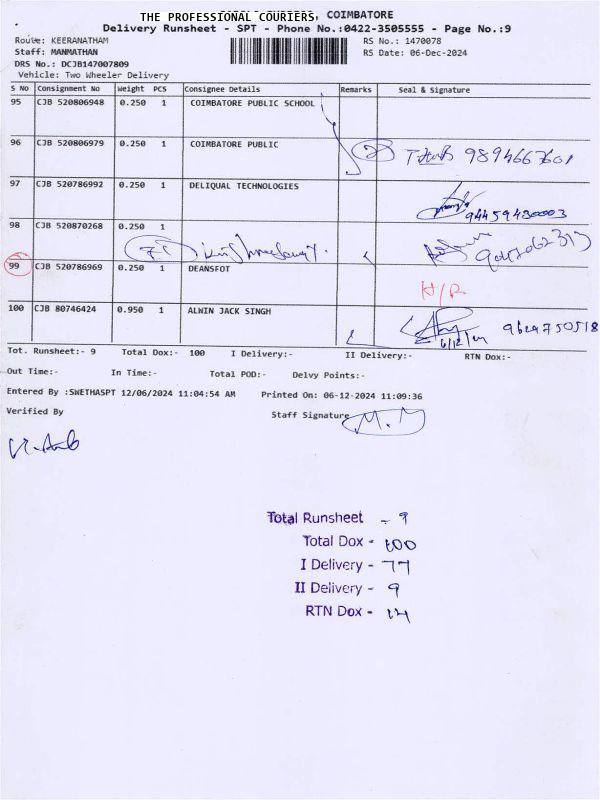 THE PROFESSIONAL COURIERS, COIMBATORE
Delivery Runsheet - SPT - Phone No.:0422-3505555 - Page No.:9
Route: KEERANATHAM
RS No.: 1470078
Staff: MANMATHAN
RS Date: 06-Dec-2024
DRS No.: DCJB147007809
Vehicle: Two Wheeler Delivery
S No Consignment No Weight PCS Consignee Details Remarks Seal & Signature
95 CJB 520806948 0.250 1 COIMBATORE PUBLIC SCHOOL
96 CJB 520806979 0.250 1 COIMBATORE PUBLIC
9894667601
97 CJB 520786992 0.250 1 DELIQUAL TECHNOLOGIES
9445943003
98 CJB 520870268 0.250 1
99 CJB 520786969 0.250 1 DEANSFOT
H/R
100 CJB 80746424 0.950 1 ALWIN JACK SINGH
6/12/24
Tot. Runsheet:- 9 Total Dox:- 100 I Delivery:- II Delivery:- RTN Dox:-
Out Time:- In Time:- Total POD:- Delvy Points:-
Entered By :SWETHASPT 12/06/2024 11:04:54 AM Printed On: 06-12-2024 11:09:36
Verified By
Staff Signature
M. M
Total Runsheet - 9
Total Dox - 100
I Delivery - 77
II Delivery - 9
RTN Dox - 14